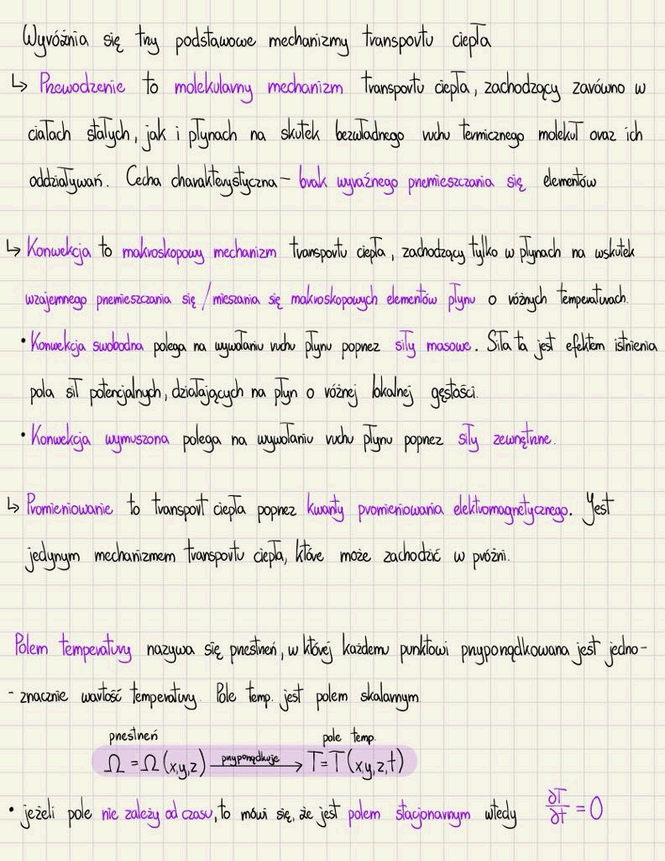 Wyróżnia się trzy podstawowe mechanizmy transportu ciepła
↳ Przewodzenie to molekularny mechanizm transportu ciepła, zachodzący zarówno w
ciałach stałych, jak i płynach na skutek bezwładnego ruchu termicznego molekuł oraz ich
oddziaływań. Cecha charakterystyczna – brak wyraźnego przemieszczania się elementów
↳ Konwekcja to makroskopowy mechanizm transportu ciepła, zachodzący tylko w płynach na wskutek
wzajemnego przemieszczania się / mieszania się makroskopowych elementów płynu o różnych temperaturach.
• Konwekcja swobodna polega na wywołaniu ruchu płynu poprzez siły masowe. Siła ta jest efektem istnienia
pola sił potencjalnych, działających na płyn o różnej lokalnej gęstości.
• Konwekcja wymuszona polega na wywołaniu ruchu płynu poprzez siły zewnętrzne.
↳ Promieniowanie to transport ciepła poprzez kwanty promieniowania elektromagnetycznego. Jest
jedynym mechanizmem transportu ciepła, które może zachodzić w próżni.
Polem temperatury nazywa się przestrzeń, w której każdemu punktowi przyporządkowana jest jedno-
- znacznie wartość temperatury. Pole temp. jest polem skalarnym.
przestrzeń pole temp.
Ω = Ω(x,y,z) przyporządkuje → T = T(x,y,z,t)
• jeżeli pole nie zależy od czasu, to mówi się, że jest polem stacjonarnym wtedy ∂T/∂t = 0